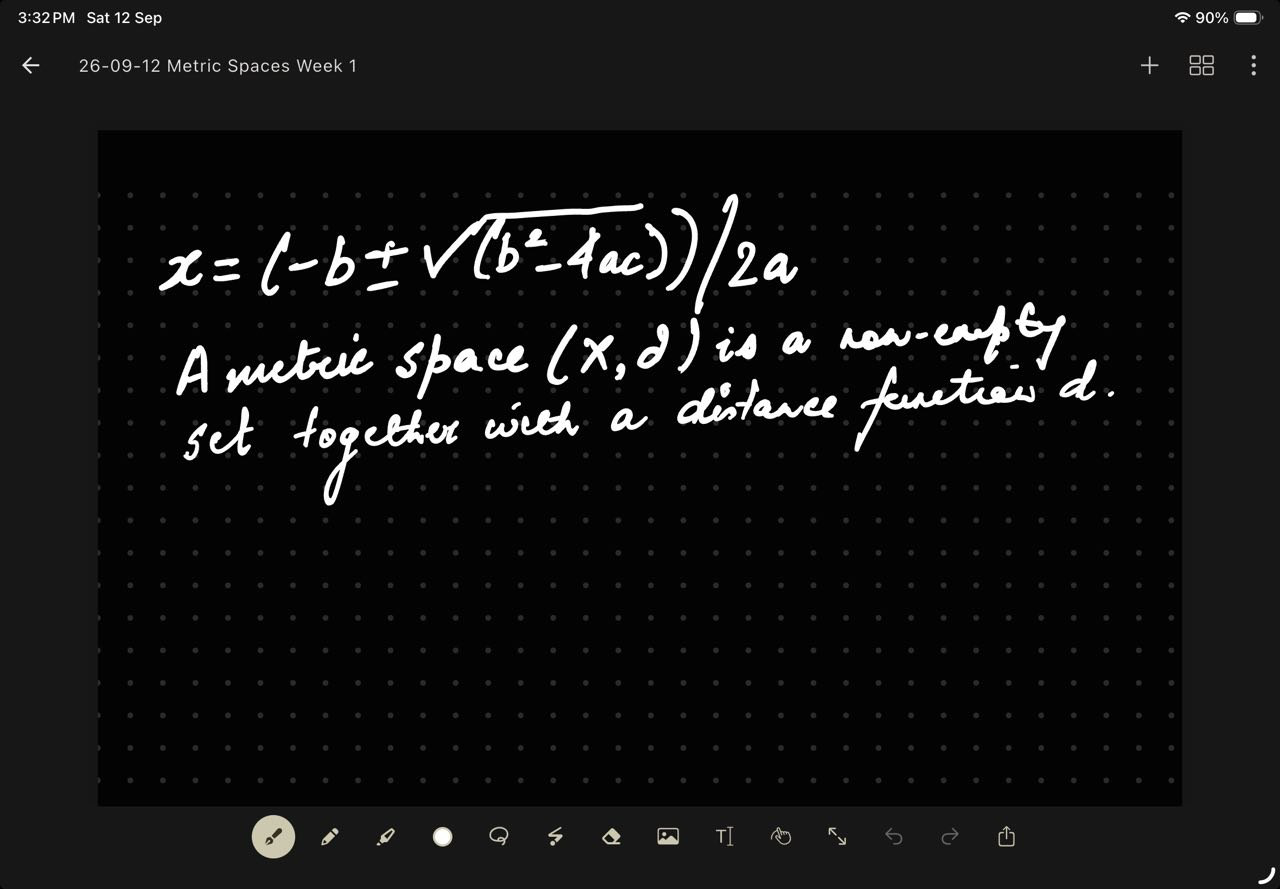 3:32 PM Sat 12 Sep
90%
26-09-12 Metric Spaces Week 1
x = (-b ± √(b²-4ac))/2a
A metric space (X, d) is a non-empty
set together with a distance function d.
T